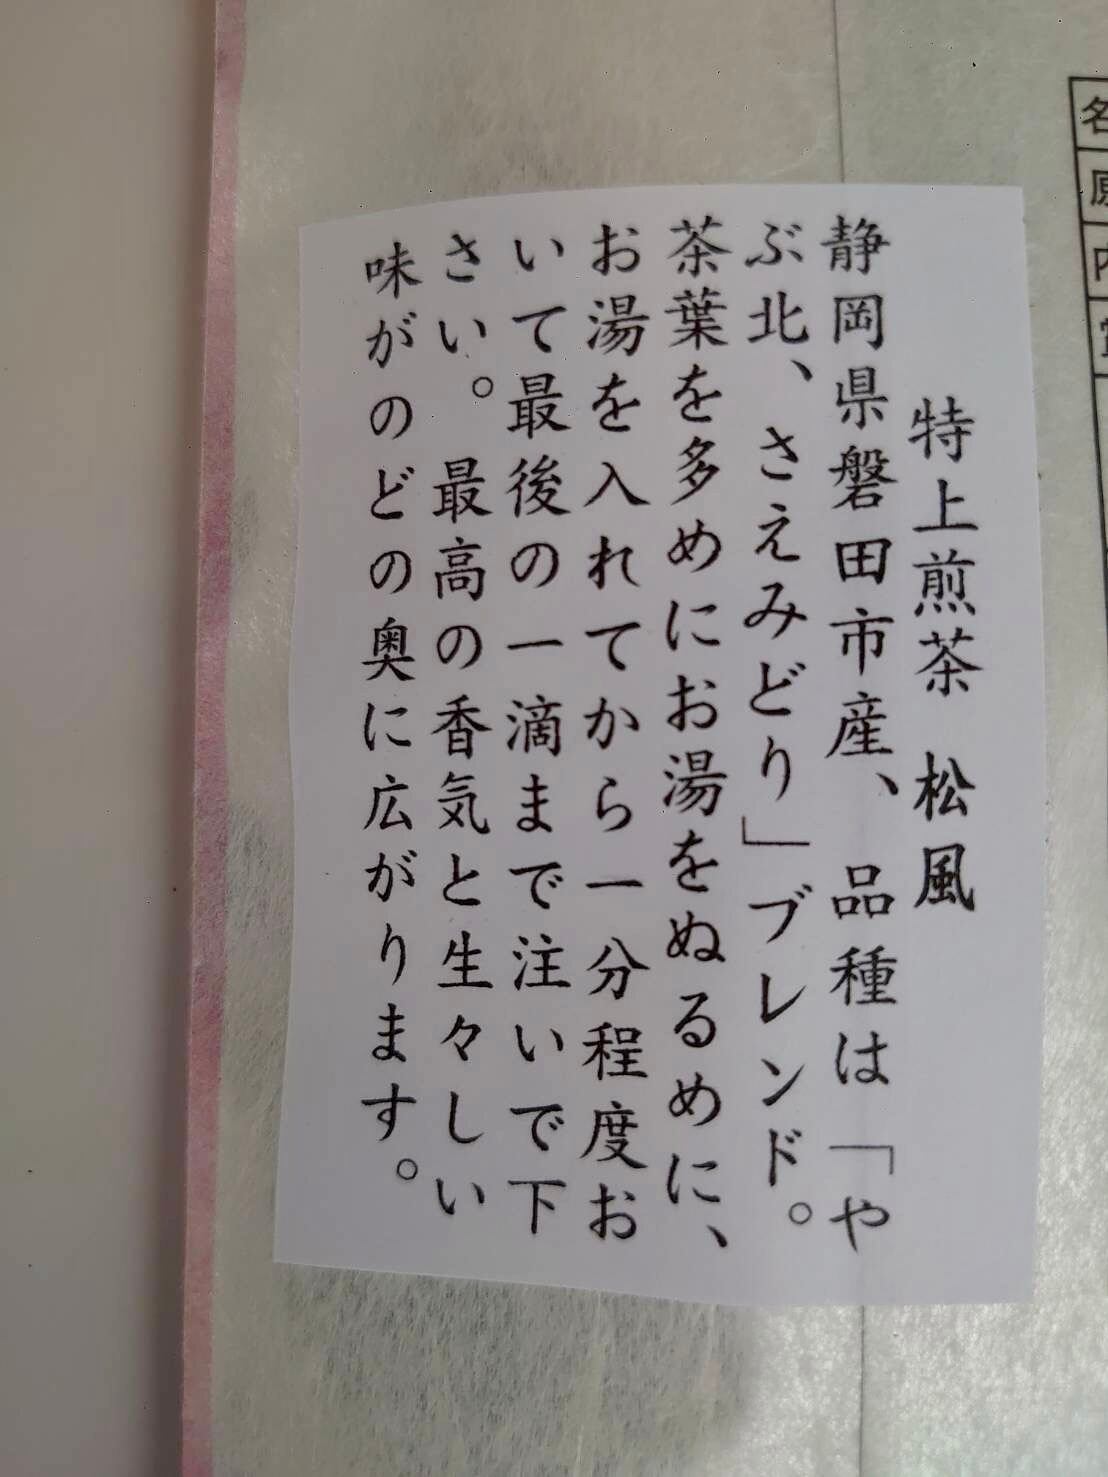 特上煎茶 松風
静岡県磐田市産、品種は「や
ぶ北、さえみどり」ブレンド。
茶葉を多めにお湯をぬるめに、
お湯を入れてから一分程度お
いて最後の一滴まで注いで下
さい。最高の香気と生々しい
味がのどの奥に広がります。
名
原
内